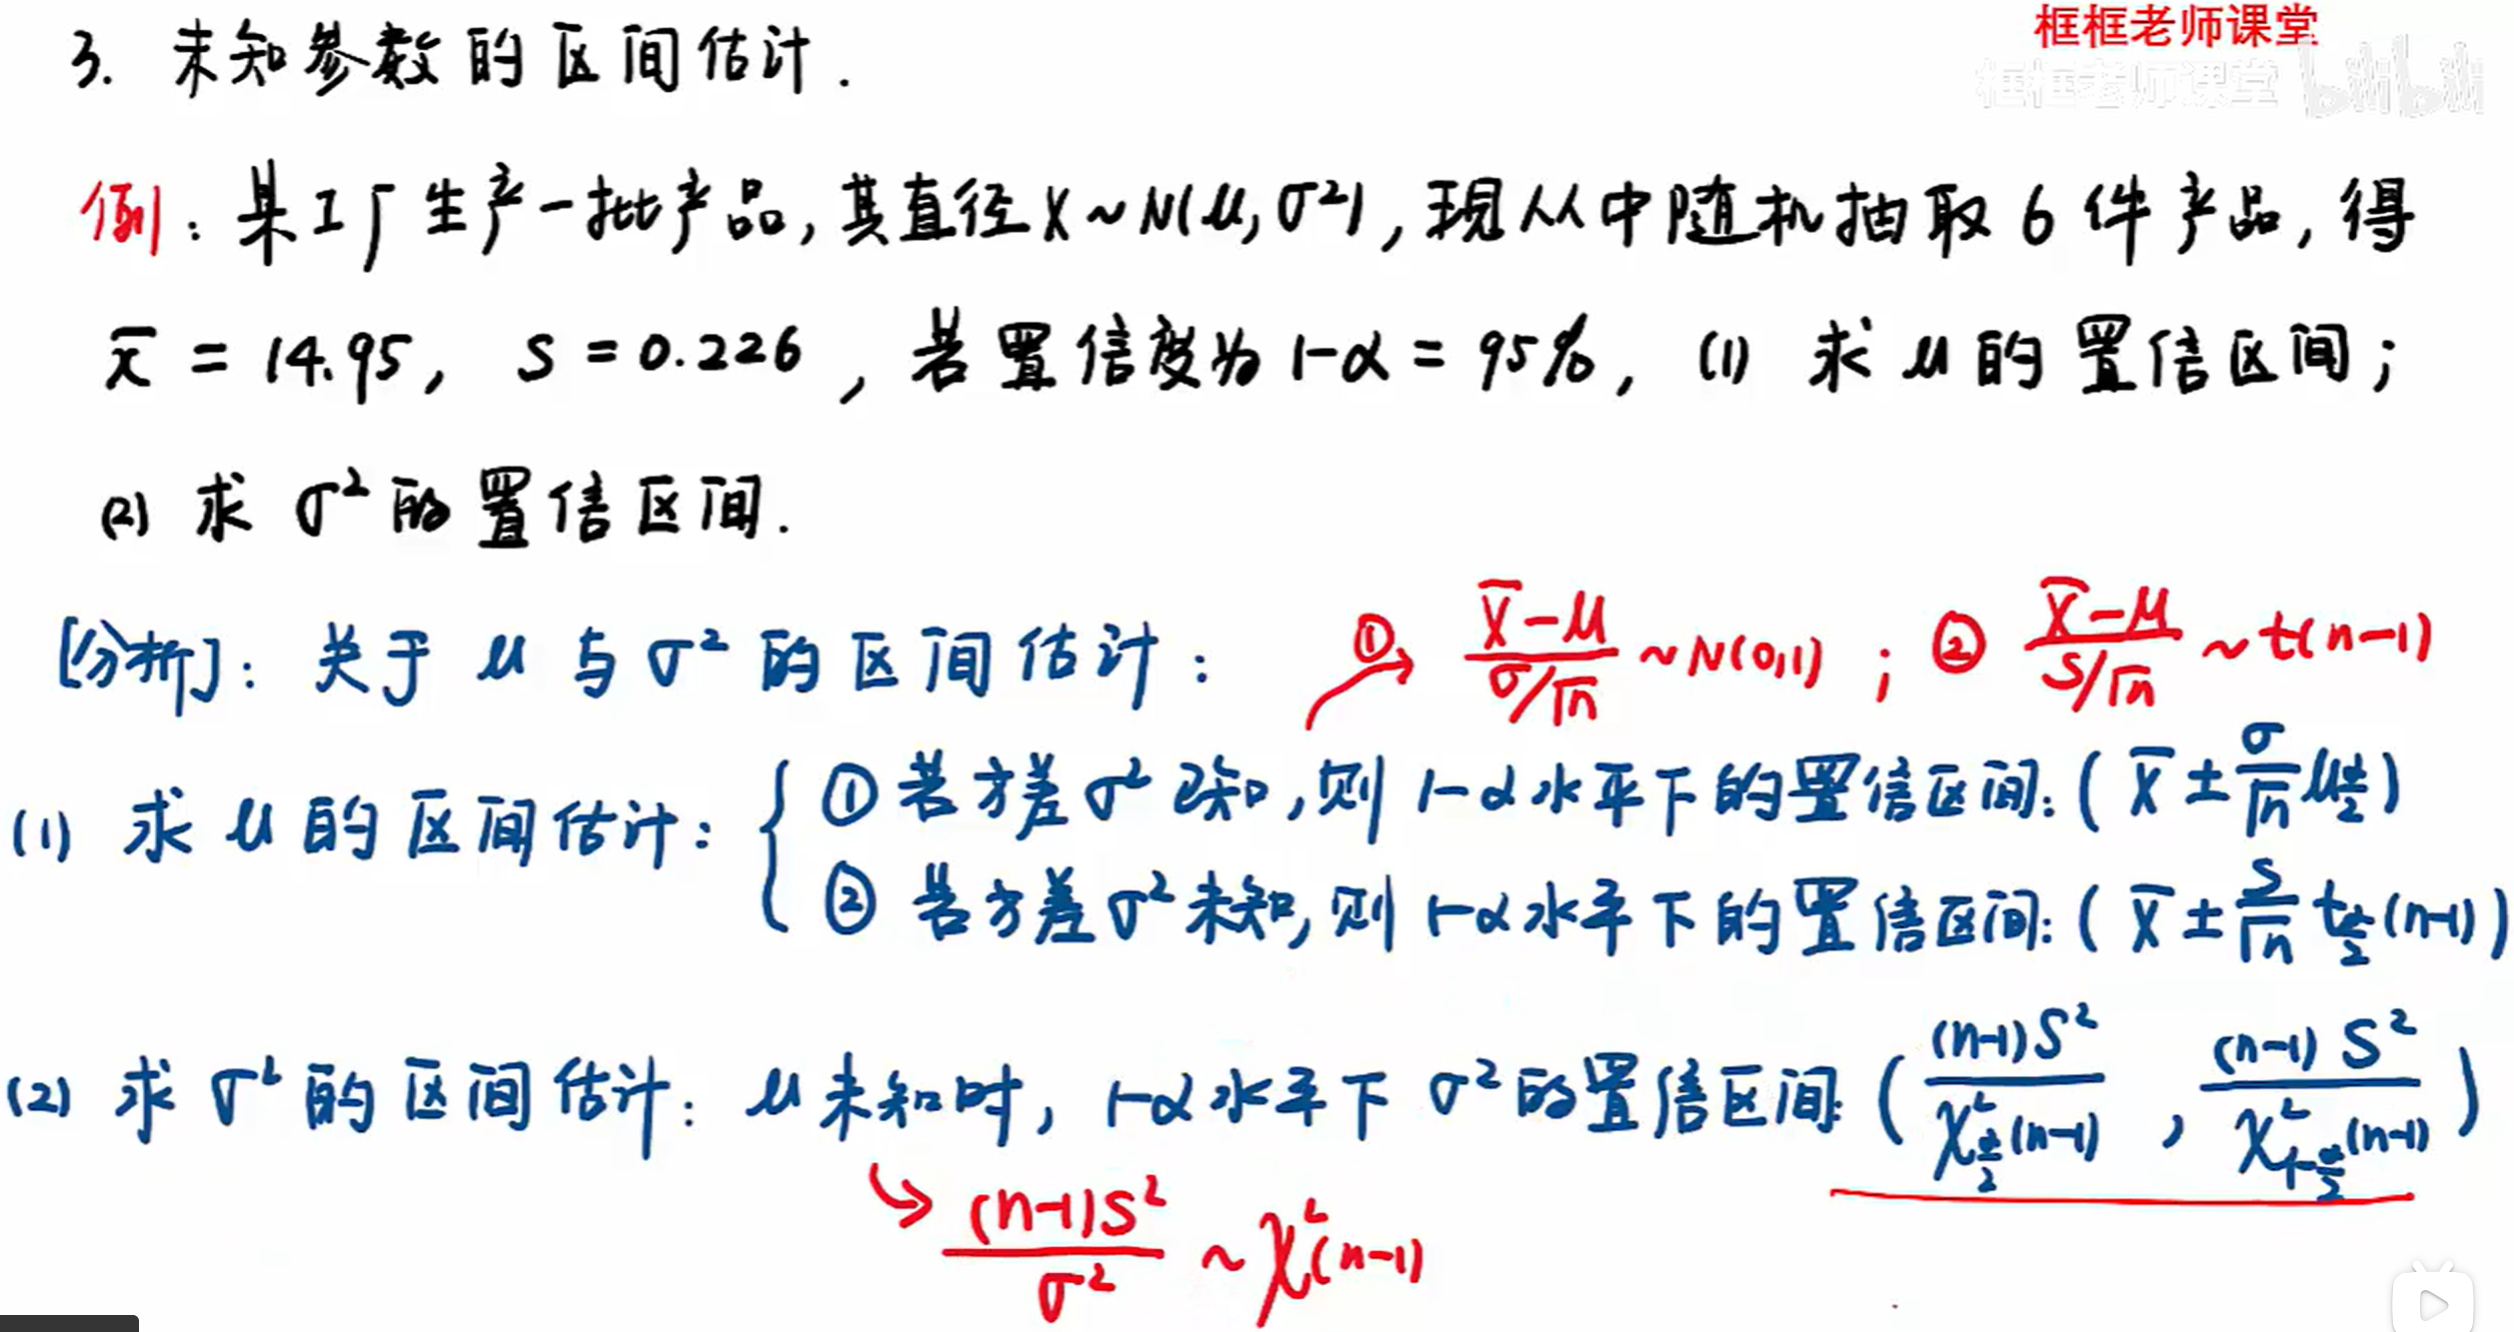 框框老师课堂
框框老师课堂 bilibili
3. 未知参数的区间估计.
例: 某工厂生产一批产品, 其直径 X~N(μ, σ²), 现从中随机抽取 6 件产品, 得
x̄ = 14.95, S = 0.226, 若置信度为 1-α = 95%, (1) 求 μ 的置信区间;
(2) 求 σ² 的置信区间.
[分析]: 关于 μ 与 σ² 的区间估计: ① (X̄-μ)/(σ/√n) ~ N(0,1) ; ② (X̄-μ)/(S/√n) ~ t(n-1)
(1) 求 μ 的区间估计: { ① 若方差 σ² 已知, 则 1-α 水平下的置信区间: ( X̄ ± σ/√n μ_{α/2} )
② 若方差 σ² 未知, 则 1-α 水平下的置信区间: ( X̄ ± S/√n t_{α/2}(n-1) )
(2) 求 σ² 的区间估计: μ 未知时, 1-α 水平下 σ² 的置信区间: ( (n-1)S²/χ²_{α/2}(n-1) , (n-1)S²/χ²_{1-α/2}(n-1) )
(n-1)S²/σ² ~ χ²(n-1)